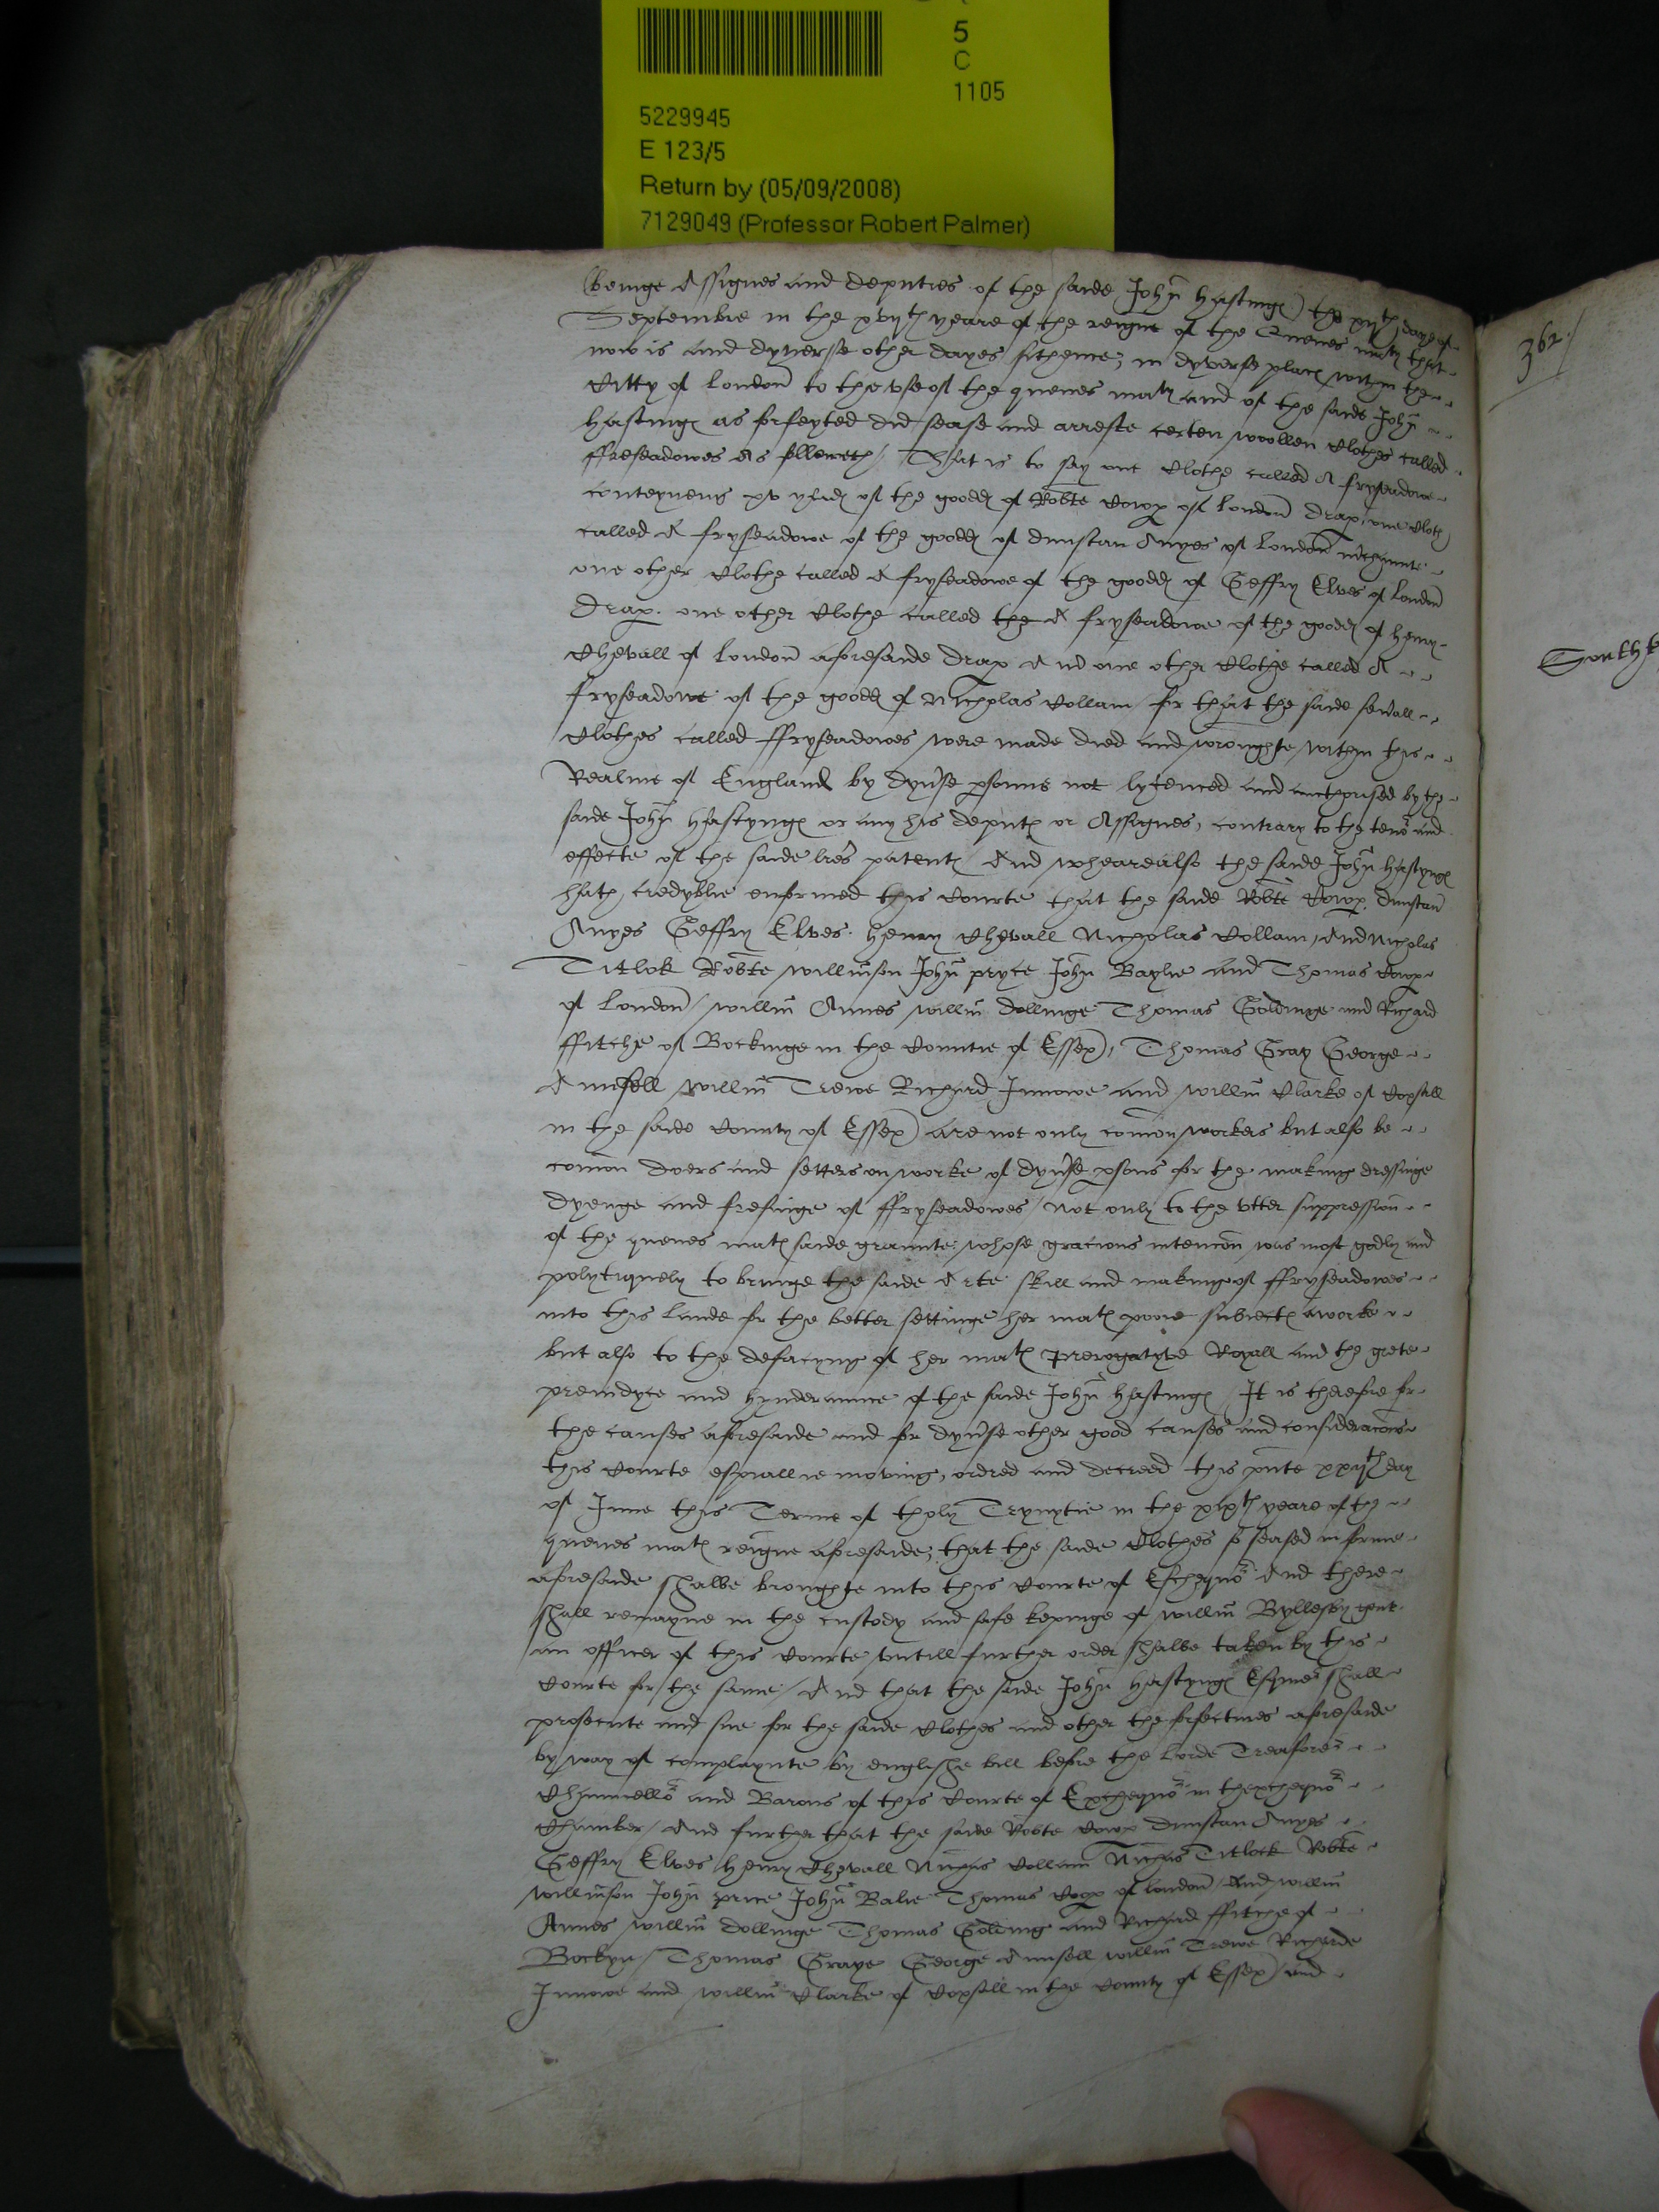 5
C
1105
5229945
E 123/5
Return by (05/09/2008)
7129049 (Professor Robert Palmer)
(beinge Assignes and deputies of the saide John Hastinges) the daye of
Septembre in the xviith yeare of the reigne of the Quenes matie that
now is and dyversse other dayes sithence, in dyverse places within the
Citty of London to the use of the quenes matie and of the saide John
Hastinges as forfeyted did sease and arreste certen woollen Clothes called
ffreseadowes As followeth / That is to say one Clothe called A fryseadowe
conteynenge xv yardes of the goodes of Robte Cowp of London drap, one Cloth
called A fryseadowe of the goodes of Dunstan Anyes of London m'chaunte
one other Clothe called A fryseadowe of the goodes of Geffry Elves of London
Drap. one other Clothe called the A fryseadowe of the goodes of Henry
Chevall of London aforesaide drap And one other Clothe called A
fryseadowe of the goodes of Nicholas Collam for that the saide sevall
Clothes called ffryseadowes were made died and wroughte within this
Realme of England by dyvse psonns not lycenced and aucthorised by the
saide John Hastynges or any his deputes or Assignes, contrary to the teno' and
effecte of the saide lres patentes / And wheare also the saide John Hastynges
hath credyblie enformed this Courte that the saide Robte Cowp. Dunstan
Anyes Geffry Elves. Henry Chevall Nicholas Collam, And Nicholas
Titlok Robte Willmson John pryce John Baylie and Thomas Cowp
of London / Willm Annes Willm Dollinge Thomas Goldinge and Richard
ffitche of Bockinge in the Countie of Essex, Thomas Gray George
Amesell Willm Trewe Richard Innowe and Willm Clarke of Coxsall
in the saide County of Essex are not only comon workers but also be
comon doers and setters on worke of dyvse psons for the makinge dressinge
dyenge and fresinge of ffryseadowes / Not only to the utter suppression
of the quenes maties saide graunte, whose gracious intencon was most godly and
polytiquely to bringe the saide Arte skill and makinge of ffryseadowes
into this lande for the better settinge her maties poore subiectes aworke
but also to the defacyng of her maties prerogatyve Royall and the grete
preiudyce and hynderaunce of the saide John Hastinges / It is therefore for
the causes aforesaide and for dyvse other good causes and consideracons
this Courte espiallie moving, ordred and decreed this pnte xxiith day
of June this Terme of tholy Trynytie in the xixth yeare of the
quenes maties reigne aforesaide, that the saide Clothes so seased in forme
aforesaide shalbe broughte into this Courte of Eschequo' And there
shall remayne in the custody and safe kepinge of Willm Byllesby gent.
an officer of this Courte untill further order shalbe taken by this
Courte for the same / And that the saide John Hastynges Esquier shall
prosecute and sue for the saide Clothes and other the forfectures aforesaide
by way of complaynte by englishe bill before the Lorde Treasorer
Chauncello' and Barons of this Courte of Exchequo' in thexchequo'
Chamber / And further that the saide Robte Cowp Dunstan Anyes
Geffry Elves Henry Chevall Nichas Collam Nichas Titlock Robte
Willmson John price John Balie Thomas Cowp of London / And Willm
Annes Willm Dollinge Thomas Golding and Richard ffitche of
Bockyn / Thomas Graye George Amsell Willm Trewe Richarde
Innowe and Willm Clarke of Coxsall in the County of Essex / and
362